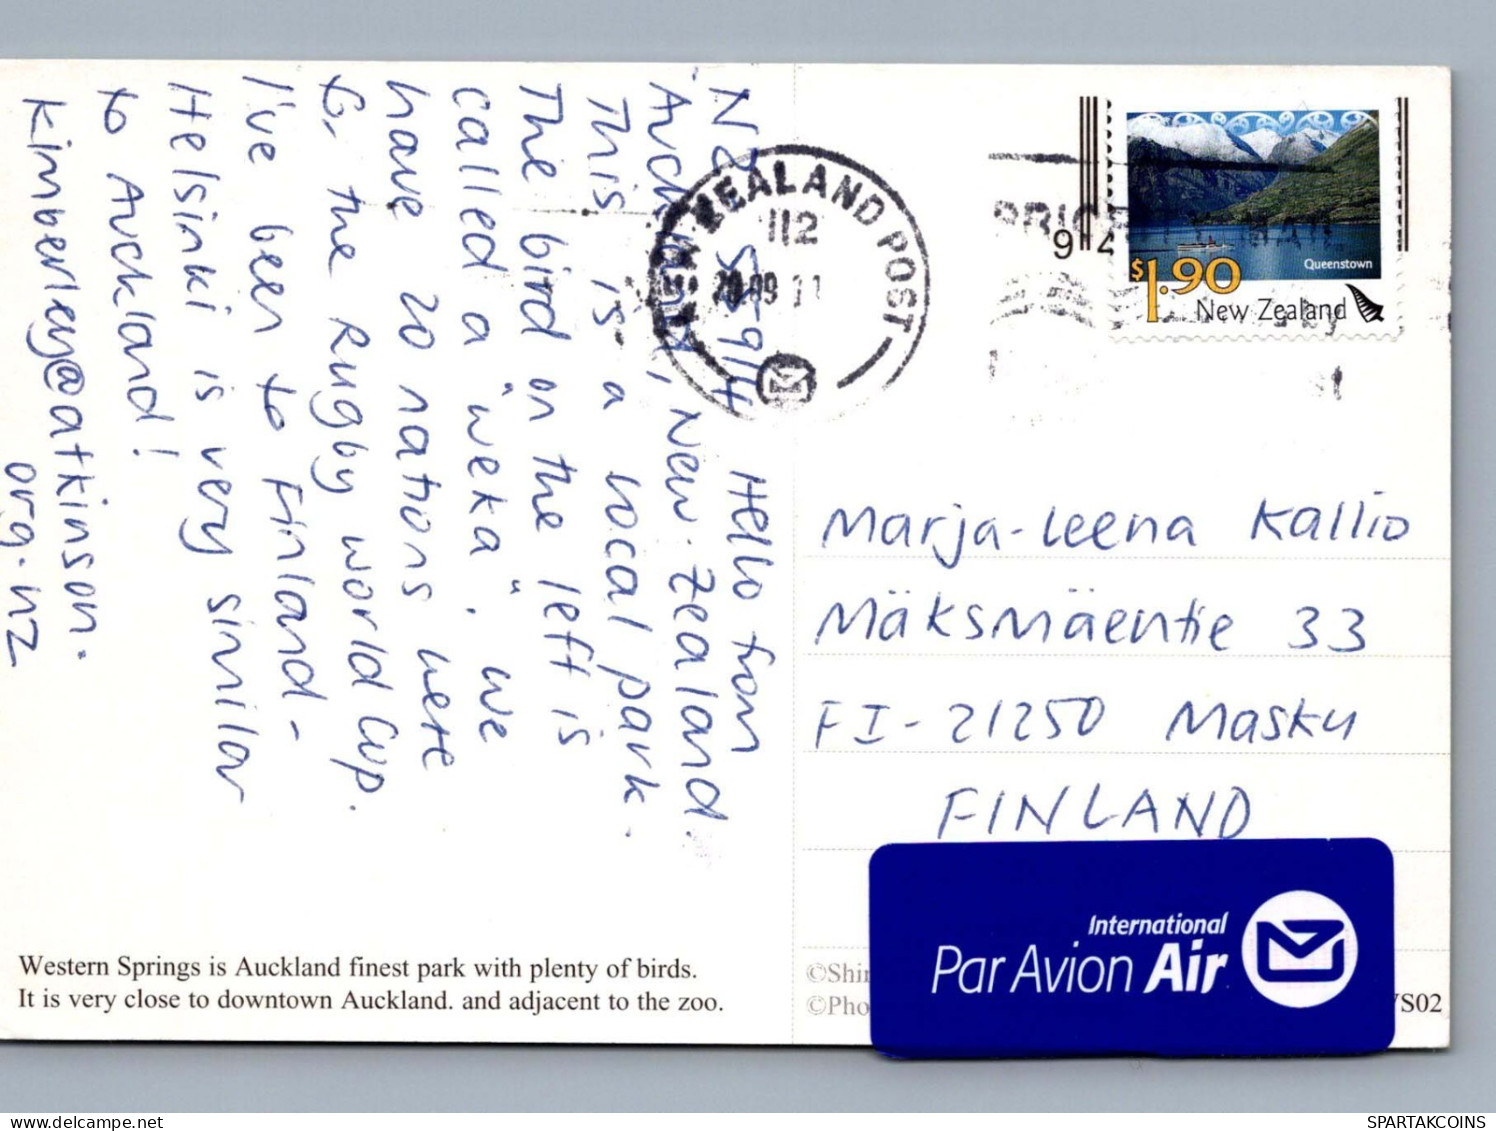 NZ 55914 Hello from
Auckland, New Zealand.
This is a local park.
The bird on the left is
called a "weka". We
have 20 nations here
for the Rugby World Cup.
I've been to Finland -
Helsinki is very similar
to Auckland!
kimberley@atkinson.
org.nz
NEW ZEALAND POST
112
20 09 11
9 4
$1.90
Queenstown
New Zealand
Marja-Leena Kallio
Mäksmäentie 33
FI-21250 Masku
FINLAND
International
Par Avion Air
Western Springs is Auckland finest park with plenty of birds.
It is very close to downtown Auckland. and adjacent to the zoo.
©Shir
©Pho
S02
SPARTAKCOINS